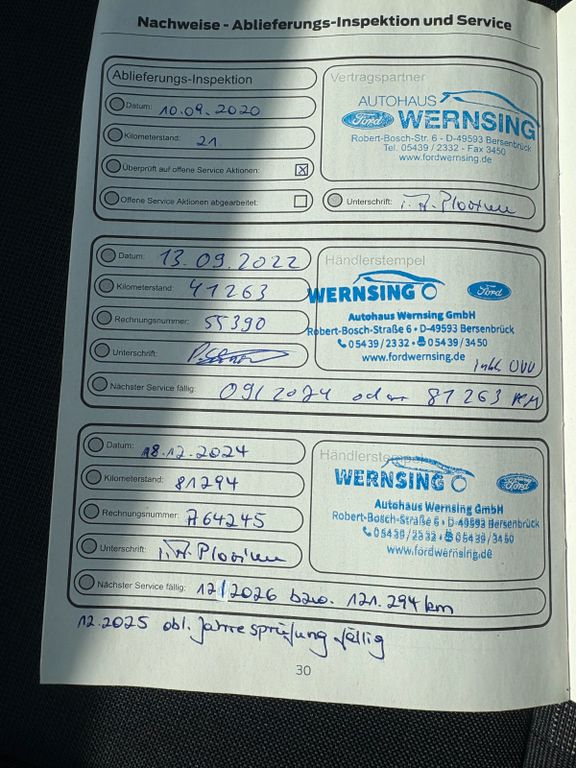 Nachweise - Ablieferungs-Inspektion und Service
Ablieferungs-Inspektion
Datum: 10.09.2020
Kilometerstand: 21
Überprüft auf offene Service Aktionen: X
Offene Service Aktionen abgearbeitet:
Vertragspartner
AUTOHAUS
Ford WERNSING
Robert-Bosch-Str. 6 - D-49593 Bersenbrück
Tel. 05439 / 2332 - Fax 3450
www.fordwernsing.de
Unterschrift: i.A.
Datum: 13.09.2022
Kilometerstand 41263
Rechnungsnummer: 55390
Unterschrift:
Händlerstempel
WERNSING Ford
Autohaus Wernsing GmbH
Robert-Bosch-Straße 6 • D-49593 Bersenbrück
05439/2332 • 05439/3450
www.fordwernsing.de
Inkl. UVV
Nächster Service fällig: 09/2024 oder 81263 KM
Datum: 18.12.2024
Kilometerstand: 81294
Rechnungsnummer: A64245
Unterschrift: i.A.
Händlerstempel
WERNSING Ford
Autohaus Wernsing GmbH
Robert-Bosch-Straße 6 • D-49593 Bersenbrück
05439/2332 • 05439/3450
www.fordwernsing.de
Nächster Service fällig: 12/2026 bzw. 121.294 km
12.2025 obl. Jahresprüfung fällig
30